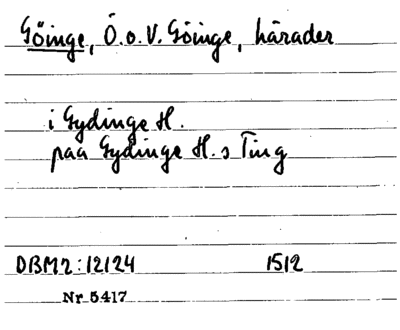 Göinge, Ö. o. V. Göinge, härader
i Gydinge H.
paa Gydinge H.s Ting
DBM2:12124 1512
Nr 5417